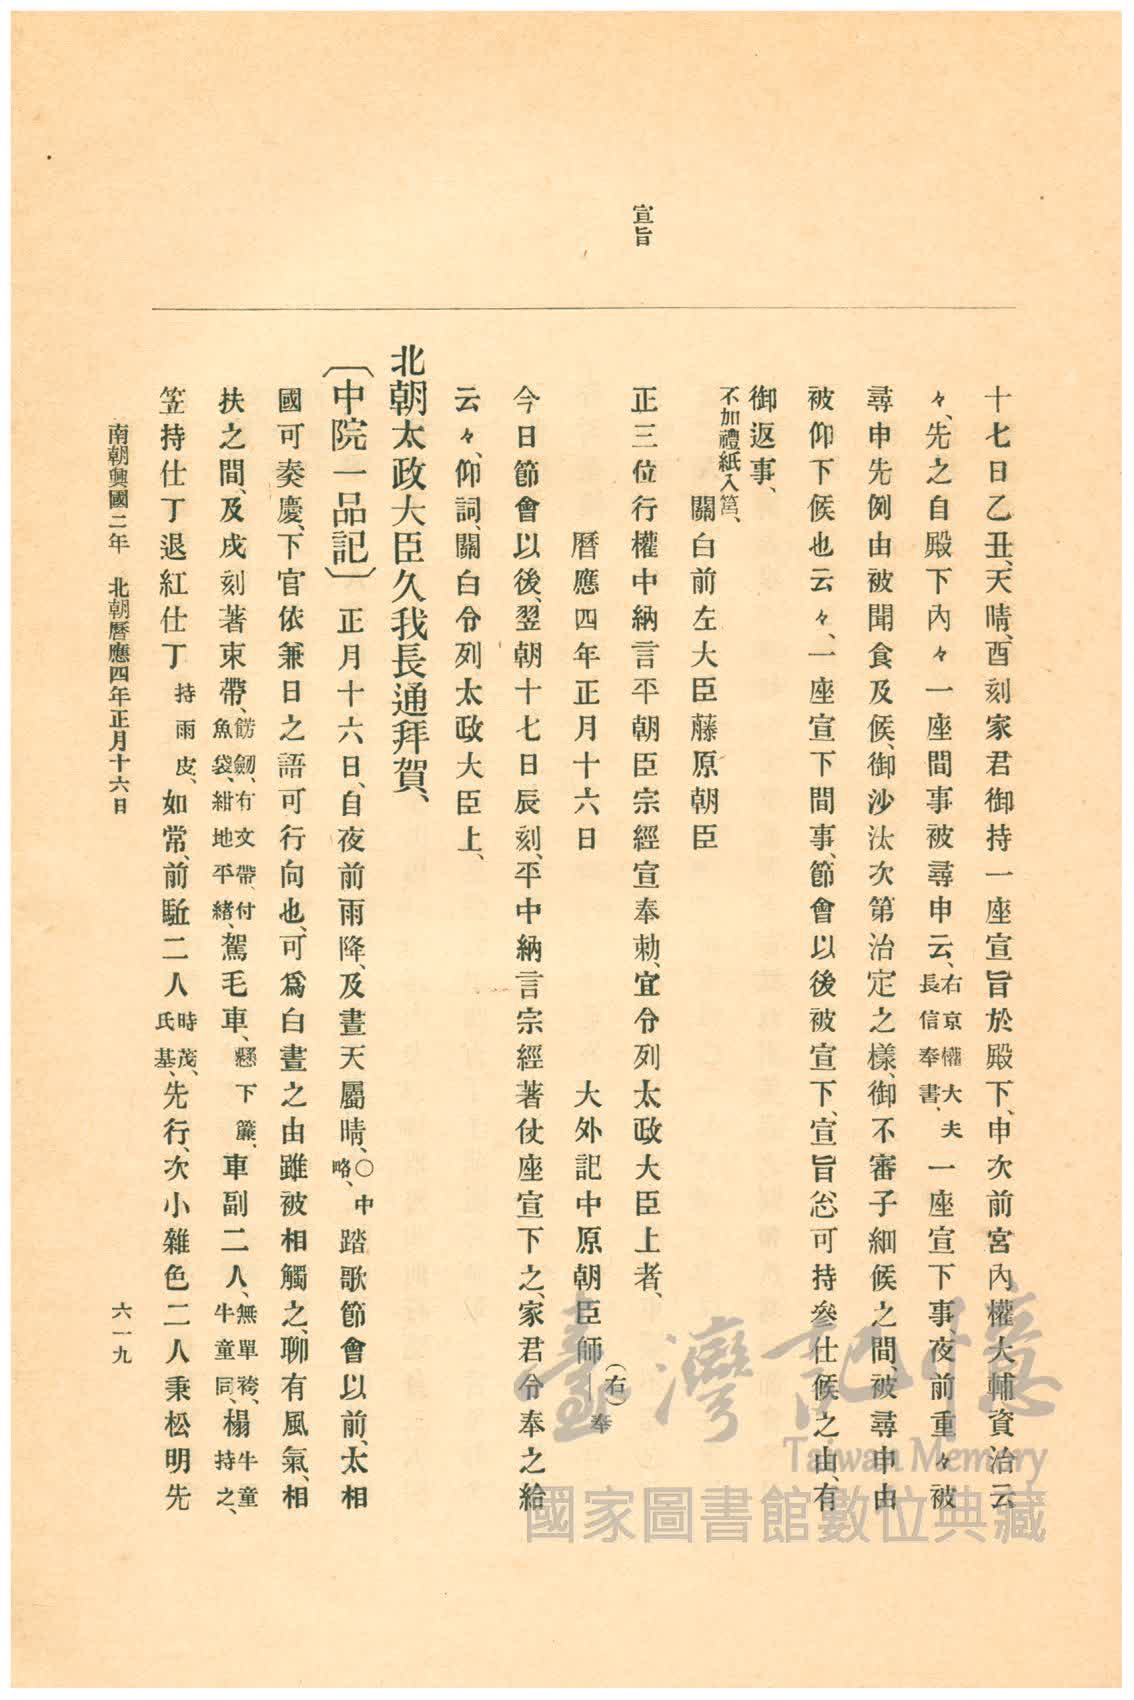 宣旨
十七日乙丑、天晴、酉刻家君御持一座宣旨於殿下、申次前宮內權大輔資治云
々、先之自殿下內々一座間事被尋申云、右京權大夫長信奉書、一座宣下事、夜前重々被
尋申先例由被聞食及候、御沙汰次第治定之樣、御不審子細候之間、被尋申由
被仰下候也云々、一座宣下間事、節會以後被宣下、宣旨忩可持參仕候之由、有
御返事、
不加禮紙入筥、
關白前左大臣藤原朝臣
正三位行權中納言平朝臣宗經宣奉勅、宜令列太政大臣上者、
曆應四年正月十六日 大外記中原朝臣師(右)—奉
今日節會以後、翌朝十七日辰刻、平中納言宗經著仗座宣下之、家君令奉之給
云々、仰詞、關白令列太政大臣上、
北朝、太政大臣久我長通拜賀、
〔中院一品記〕 正月十六日、自夜前雨降、及晝天屬晴、○中略、踏歌節會以前、太相
國可奏慶、下官依兼日之語可行向也、可爲白晝之由雖被相觸之、聊有風氣、相
扶之間、及戌刻著束帶、餝劒、有文帶、付魚袋、紺地平緒、駕毛車、懸下簾、車副二人、無單袴、牛童同、榻牛童持之、
笠持仕丁退紅仕丁持雨皮、如常、前駈二人時茂、氏基、先行、次小雜色二人秉松明先
南朝興國二年 北朝曆應四年正月十六日
六一九
臺灣記憶
Taiwan Memory
國家圖書館數位典藏